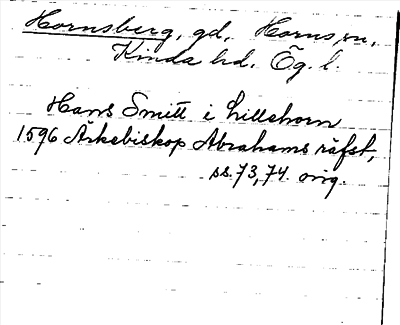 Hornsberg, gd. Horns sn,
Kinda hd. Ög. l.
Hans Smitt i Lillehorn
1596 Ärkebiskop Abrahams räfst,
ss. 73, 74. orig.